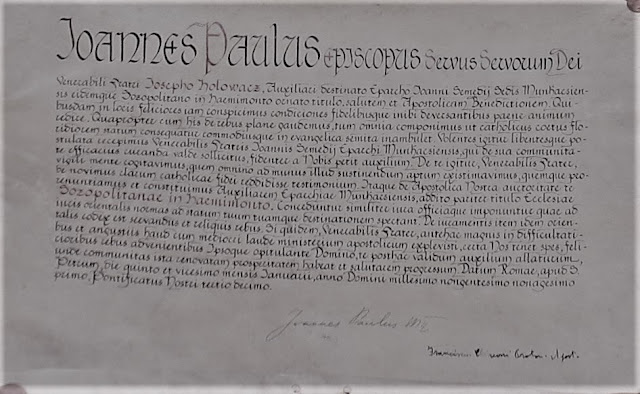 Joannes Paulus Episcopus Servus Servorum Dei
Venerabili Fratri Josepho Holowacz, Auxiliari destinato Eparcho Joanni Semedij Sedis Munkacsien-
sis eidemque Sozopolitano in Haemimonto ornato titulo, salutem et Apostolicam Benedictionem. Qui-
busdam in locis feliciores iam conspicimus condiciones fidelibusque inibi deversantibus parere animum
cedere. Quapropter cum his de rebus plane gaudemus, tum omnia componimus ut catholicus coetus flo-
ridiorem statum consequatur commodiusque in evangelica semita inambulet. Volentes igitur libentesque po-
stulata recepimus Venerabilis Fratris Joannis Semedij Eparchi Munkacsiensis, qui de sua communita-
te efficacius curanda valde sollicitus, fidenter a Nobis petit auxilium. De te igitur, Venerabilis Frater,
vigili mente cogitavimus, quem omnino ad munus illud sustinendum aptum existimavimus, quemque pro-
be novimus clarum catholicae fidei reddidisse testimonium. Itaque de Apostolica Nostra auctoritate te
renuntiamus et constituimus Auxiliarem Eparchiae Munkacsiensis, addito pariter titulo Ecclesiae
Sozopolitanae in Haemimonto. Conceduntur similiter iura officiaque imponuntur quae ad
iuris orientalis normas ad statum tuum tuamque destinationem spectant. De iuramentis item idem orien-
talis codex est servandus et reliquis rebus. Si quidem, Venerabilis Frater, antehac magnis in difficultati-
bus et angustiis haud cum mediocri laude ministerium apostolicum explevisti, certa Nos tenet spes, feli-
cioribus rebus advenientibus Ipsoque opitulante Domino, te posthac validum auxilium allaturum,
unde communitas ista renovatam prosperitatem habeat et salutarem progressum. Datum Romae, apud S.
Petrum, die quinto et vicesimo mensis Januarii, anno Domini millesimo nongentesimo nonagesimo
primo, Pontificatus Nostri tertio decimo.
Joannes Paulus